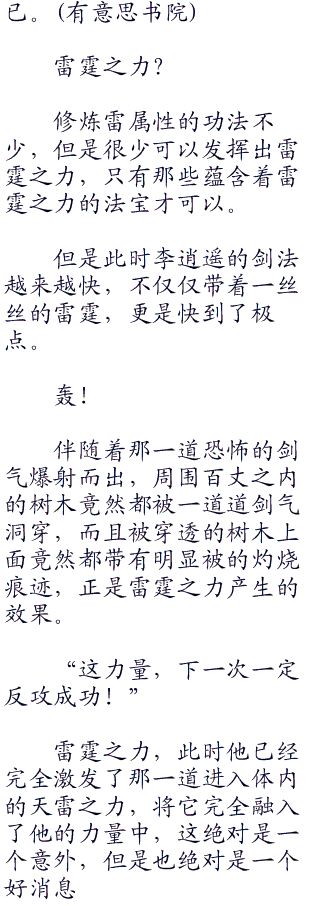 已。(有意思书院)
雷霆之力？
修炼雷属性的功法不
少，但是很少可以发挥出雷
霆之力，只有那些蕴含着雷
霆之力的法宝才可以。
但是此时李逍遥的剑法
越来越快，不仅仅带着一丝
丝的雷霆，更是快到了极
点。
轰！
伴随着那一道恐怖的剑
气爆射而出，周围百丈之内
的树木竟然都被一道道剑气
洞穿，而且被穿透的树木上
面竟然都带有明显被的灼烧
痕迹，正是雷霆之力产生的
效果。
“这力量，下一次一定
反攻成功！”
雷霆之力，此时他已经
完全激发了那一道进入体内
的天雷之力，将它完全融入
了他的力量中，这绝对是一
个意外，但是也绝对是一个
好消息